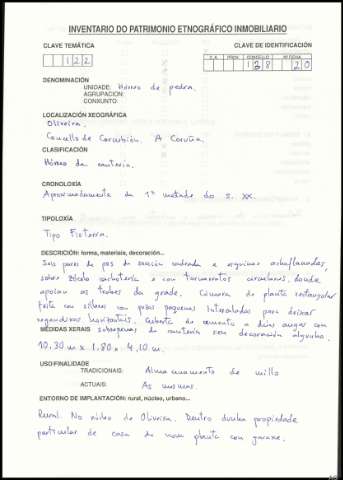 INVENTARIO DO PATRIMONIO ETNOGRÁFICO INMOBILIARIO
CLAVE TEMÁTICA CLAVE DE IDENTIFICACIÓN
1 2 2
C.A. PROV. CONCELLO Nº FICHA
1 3 8 2 0
DENOMINACIÓN
UNIDADE: Hórreo de pedra.
AGRUPACION:
CONXUNTO:
LOCALIZACIÓN XEOGRÁFICA
Oliveira.
Concello de Corcubión. A Coruña.
CLASIFICACIÓN
Hórreo de cantería.
CRONOLOXÍA
Aproximadamente da 1ª metade do S. XX.
TIPOLOXÍA
Tipo Fisterra.
DESCRICIÓN: forma, materiais, decoración...
Seis pares de pés de sección cadrada e esquinas achaflanadas,
sobre zócalo cachotería e con tornarratos circulares, donde
apoian as trabes da grade. Cámara de planta rectangular
feita con sillares con pezas pequenas intercaladas para deixar
regandixas horizontais. Cuberta de cemento a dúas augas con
MEDIDAS XERAIS sobrepenas de cantería sen decoración algunha.
10,30 m x 1,80 x 4,10 m.
USO/FINALIDADE
TRADICIONAIS: Almacenamento de millo
ACTUAIS: As mesmas.
ENTORNO DE IMPLANTACIÓN: rural, núcleo, urbano...
Rural. No núcleo de Oliveira. Dentro dunha propiedade
particular de casa de nova planta con garaxe.